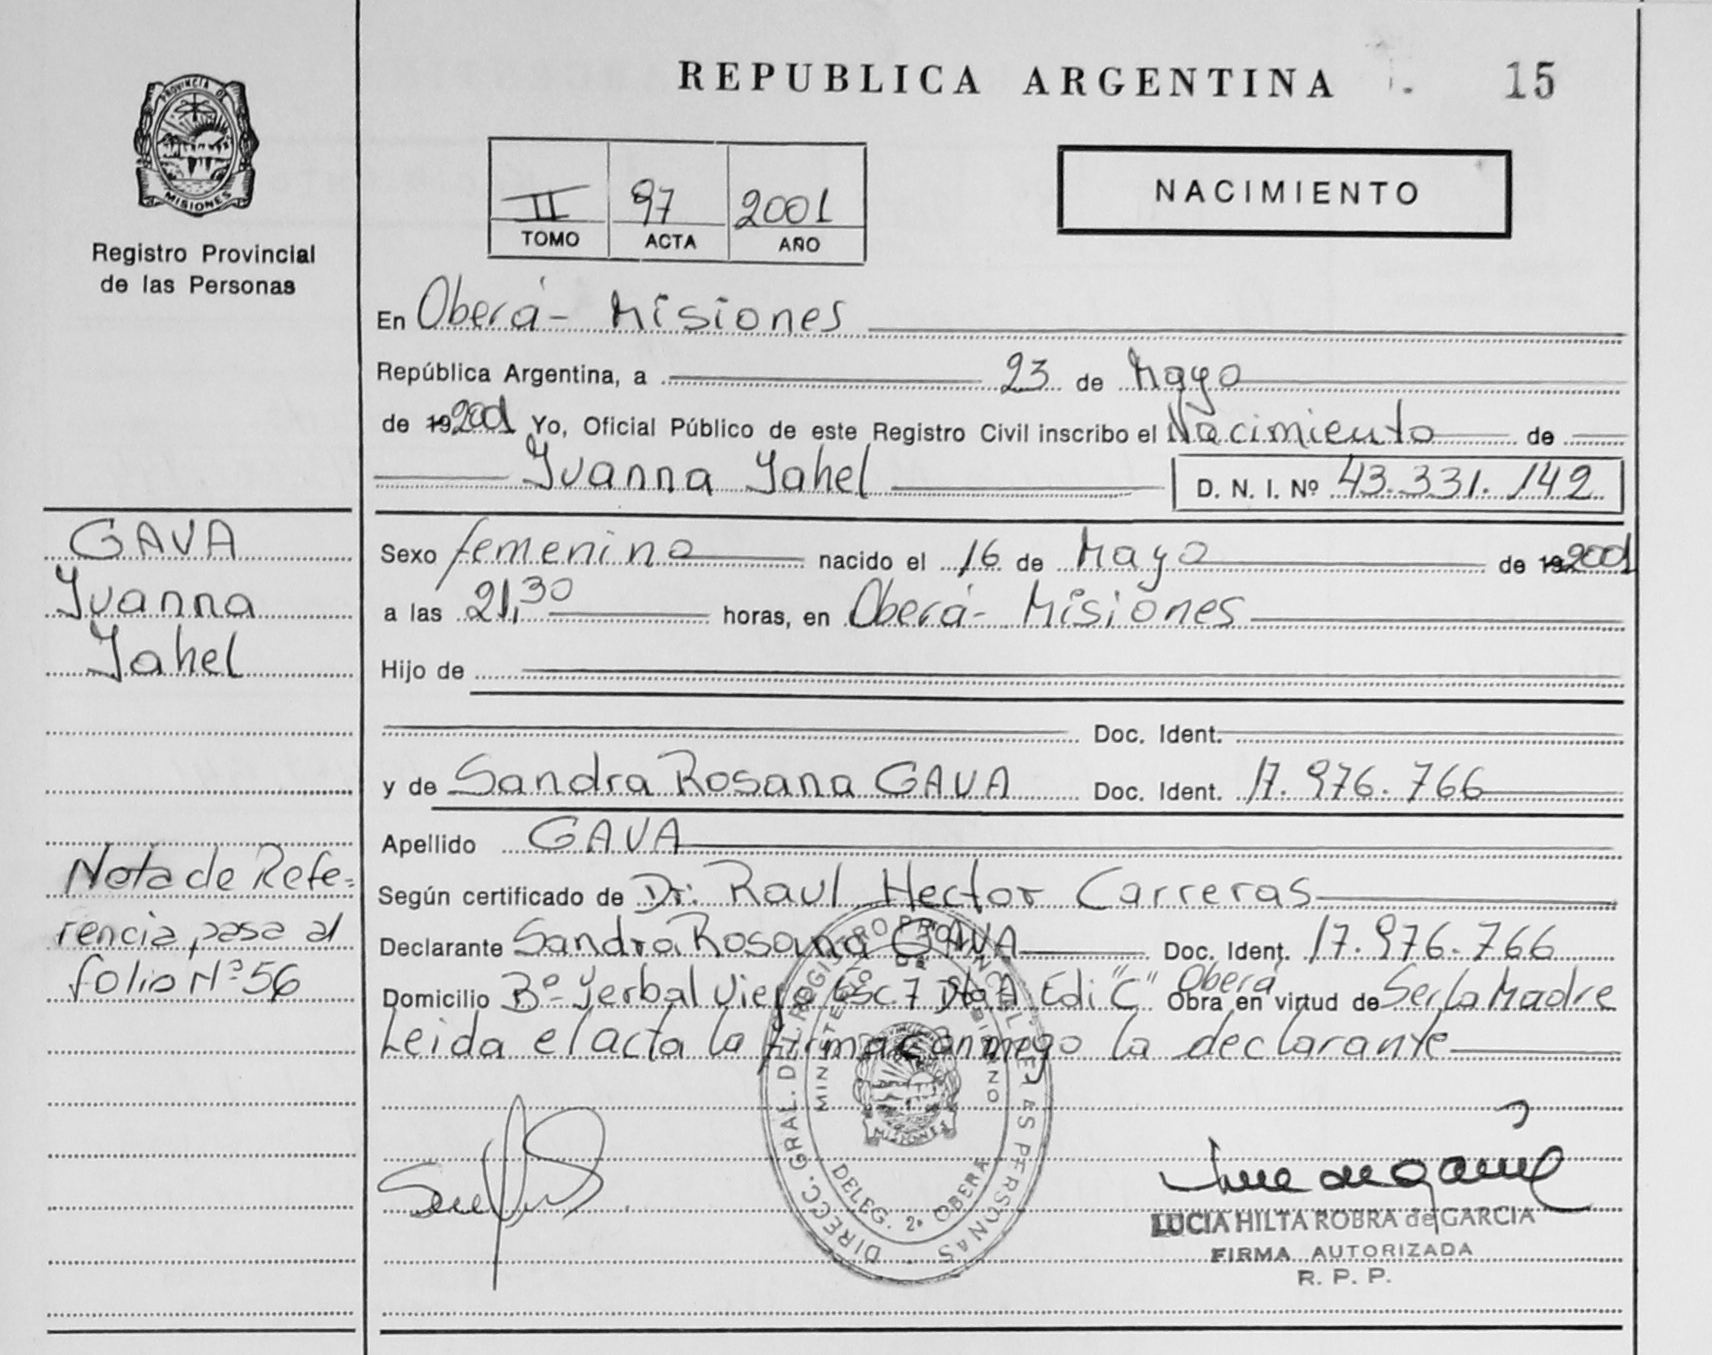 REPUBLICA ARGENTINA 15
PROVINCIA DE
MISIONES
Registro Provincial
de las Personas
II 97 2001
TOMO ACTA AÑO
NACIMIENTO
En Oberá - Misiones
República Argentina, a 23 de Mayo
de 19 2001 Yo, Oficial Público de este Registro Civil inscribo el Nacimiento de
Yvanna Jahel D. N. I. Nº 43.331.142
GAVA
Yvanna
Jahel
Sexo femenino nacido el 16 de Mayo de 19 2001
a las 21,30 horas, en Oberá - Misiones
Hijo de
Doc. Ident.
y de Sandra Rosana GAVA Doc. Ident. 17.976.766
Apellido GAVA
Según certificado de Dr: Raul Hector Carreras
Declarante Sandra Rosana GAVA Doc. Ident. 17.976.766
Domicilio Bº- Yerbal Viejo Esc. 7 Dto A Edi "C" Oberá Obra en virtud de Ser la Madre
Leida el acta la firma conmigo la declarante
Nota de Refe=
rencia, pasa al
folio Nº 56
DIRECC. GRAL. DEL REGISTRO PROVINCIAL DE LAS PERSONAS
MINISTERIO DE GOBIERNO
MISIONES
DELEG. 2ª OBERA
LUCIA HILTA ROBRA de GARCIA
FIRMA AUTORIZADA
R. P. P.